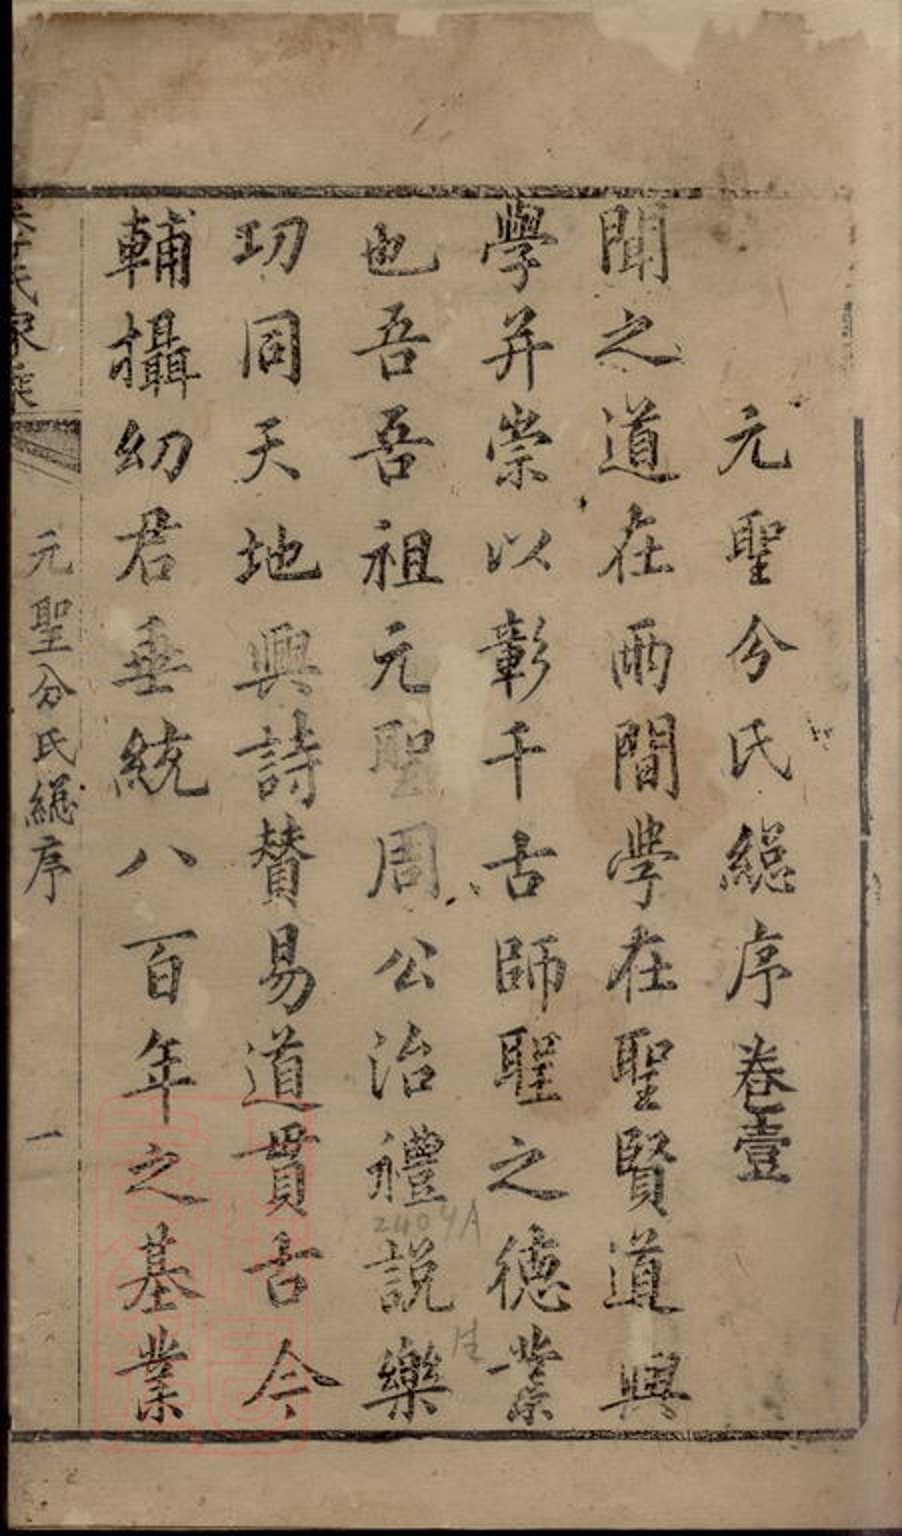 元聖分氏總序卷壹
聞之道在兩間學在聖賢道與
學并崇以彰千古師聖之德業
也吾吾祖元聖周公治禮說樂
功同天地興詩賛易道貫古今
輔攝幼君垂統八百年之基業
氏家乘
元聖分氏總序
一
2404A